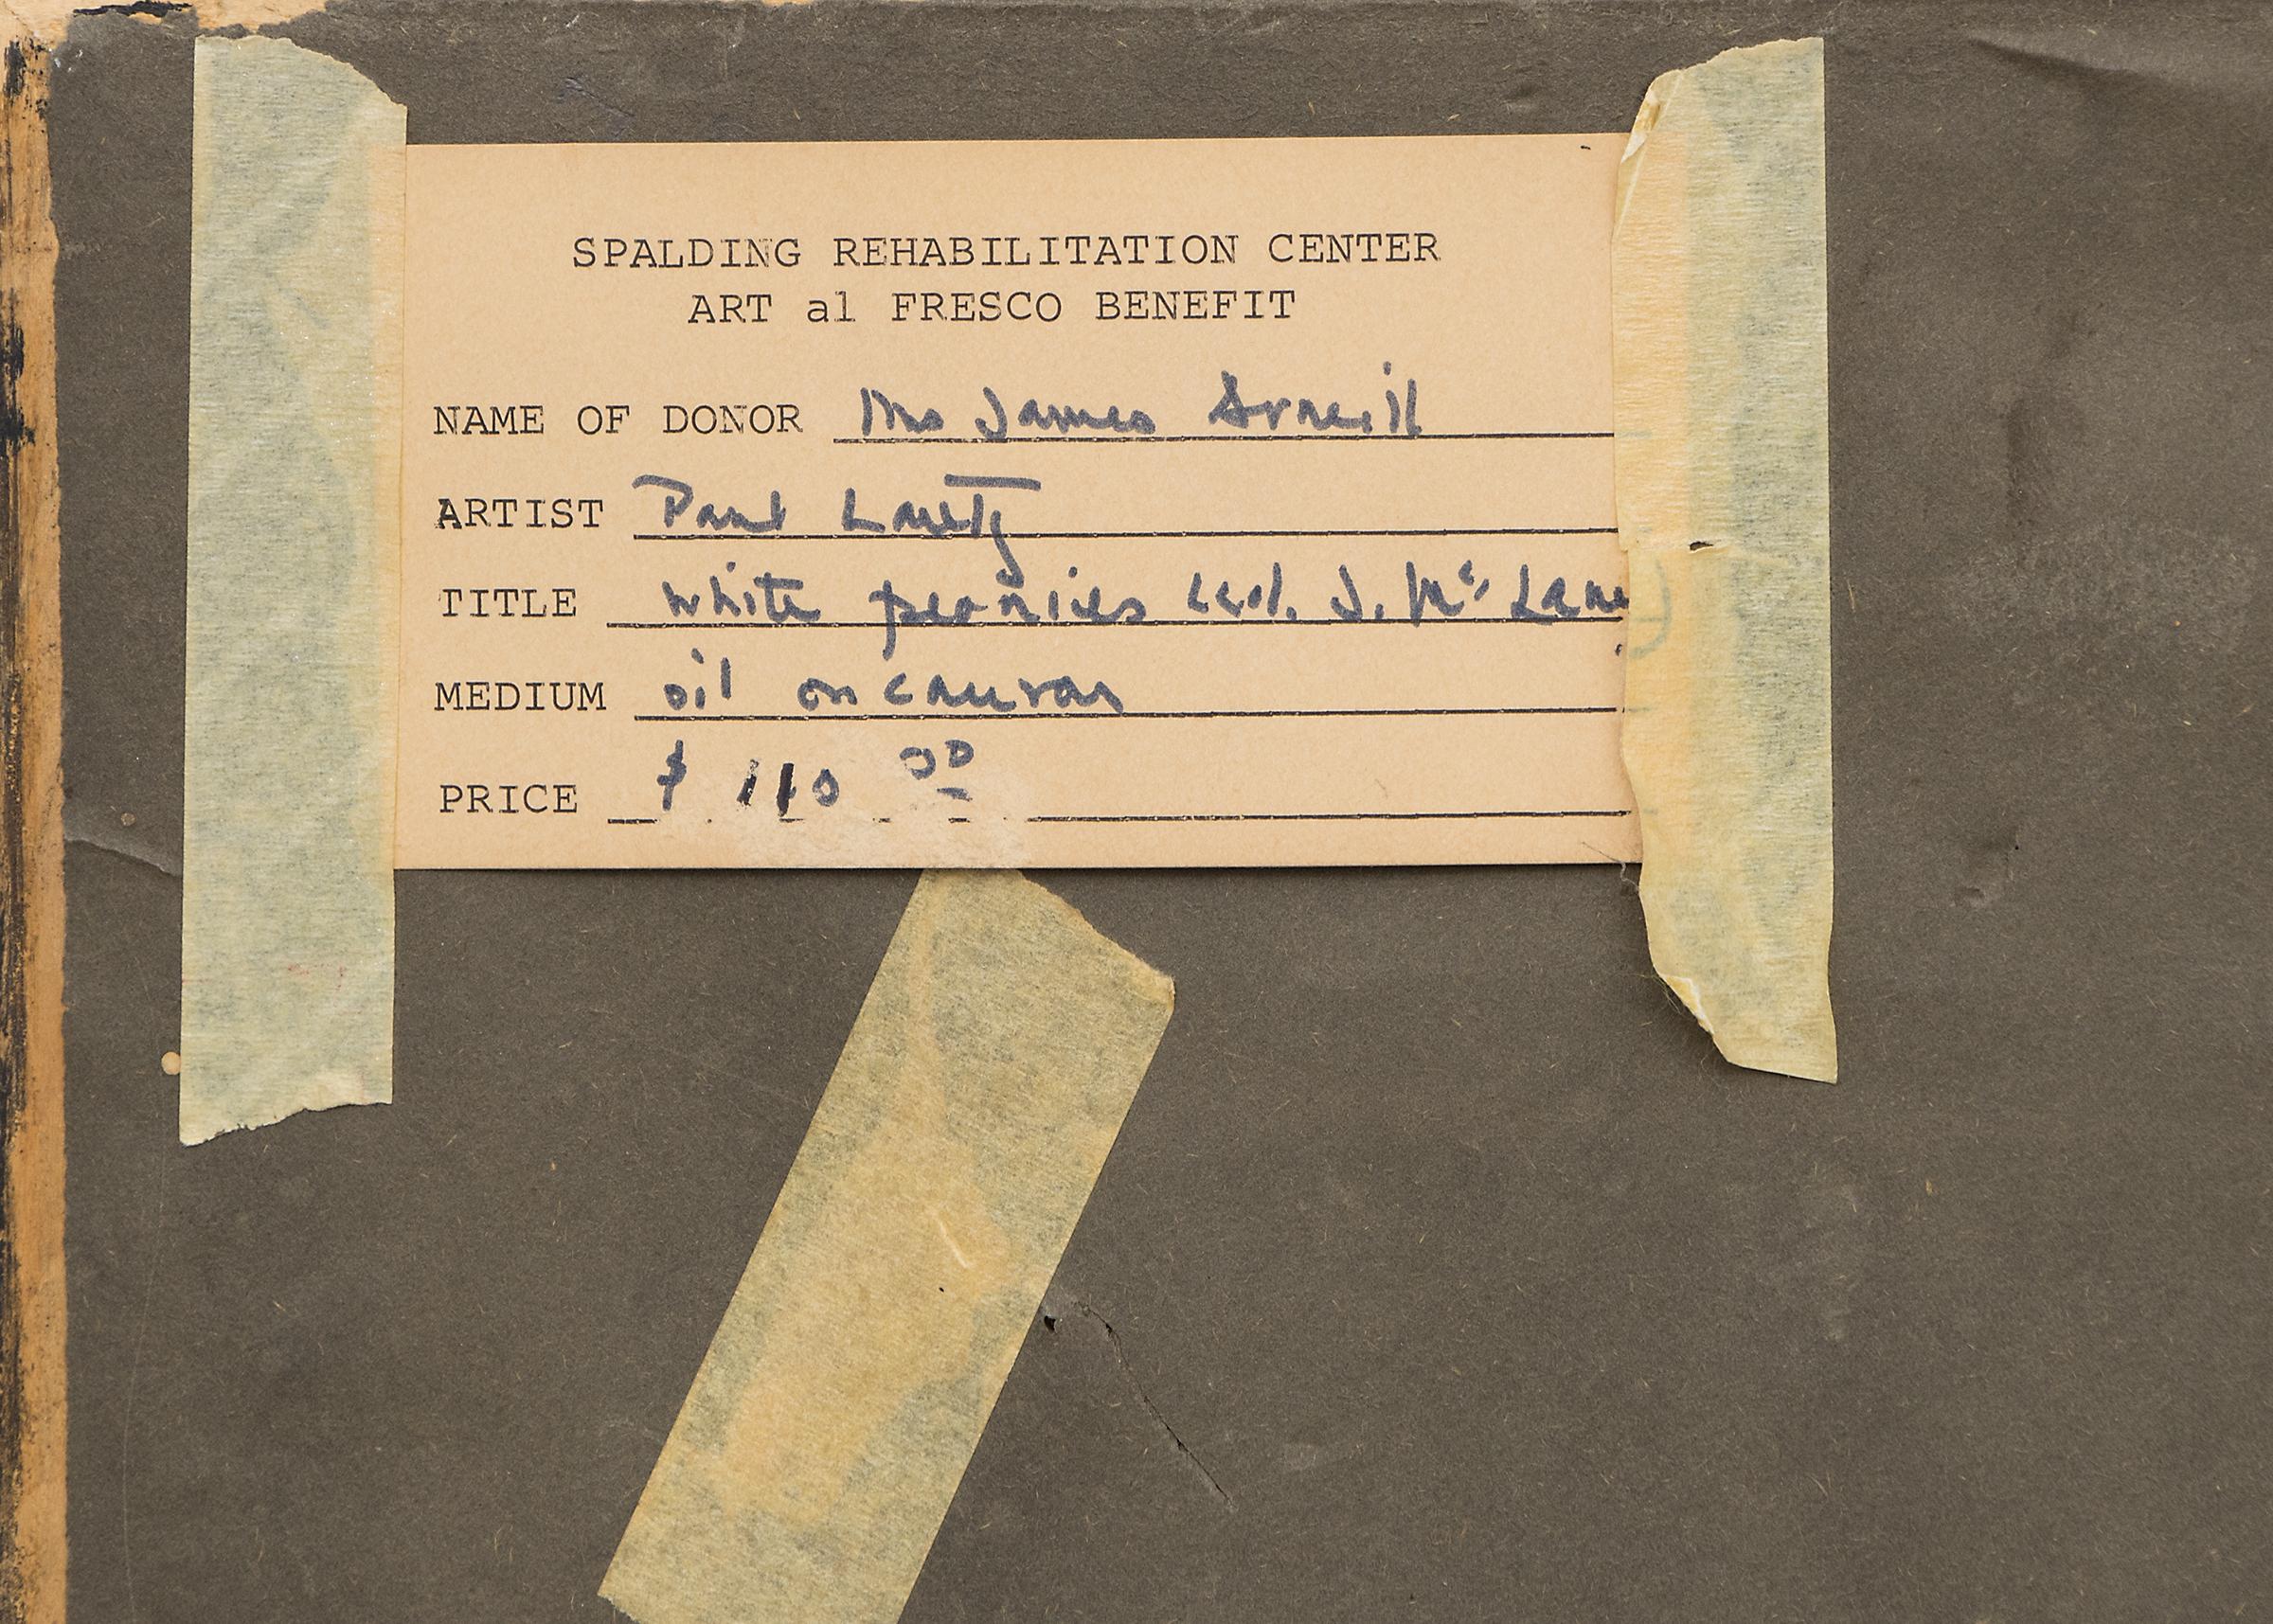 SPALDING REHABILITATION CENTER
ART al FRESCO BENEFIT
NAME OF DONOR Mrs James Arneill
ARTIST Paul Lauritz
TITLE white peonies J. Mc Lane
MEDIUM oil on canvas
PRICE $ 110 00